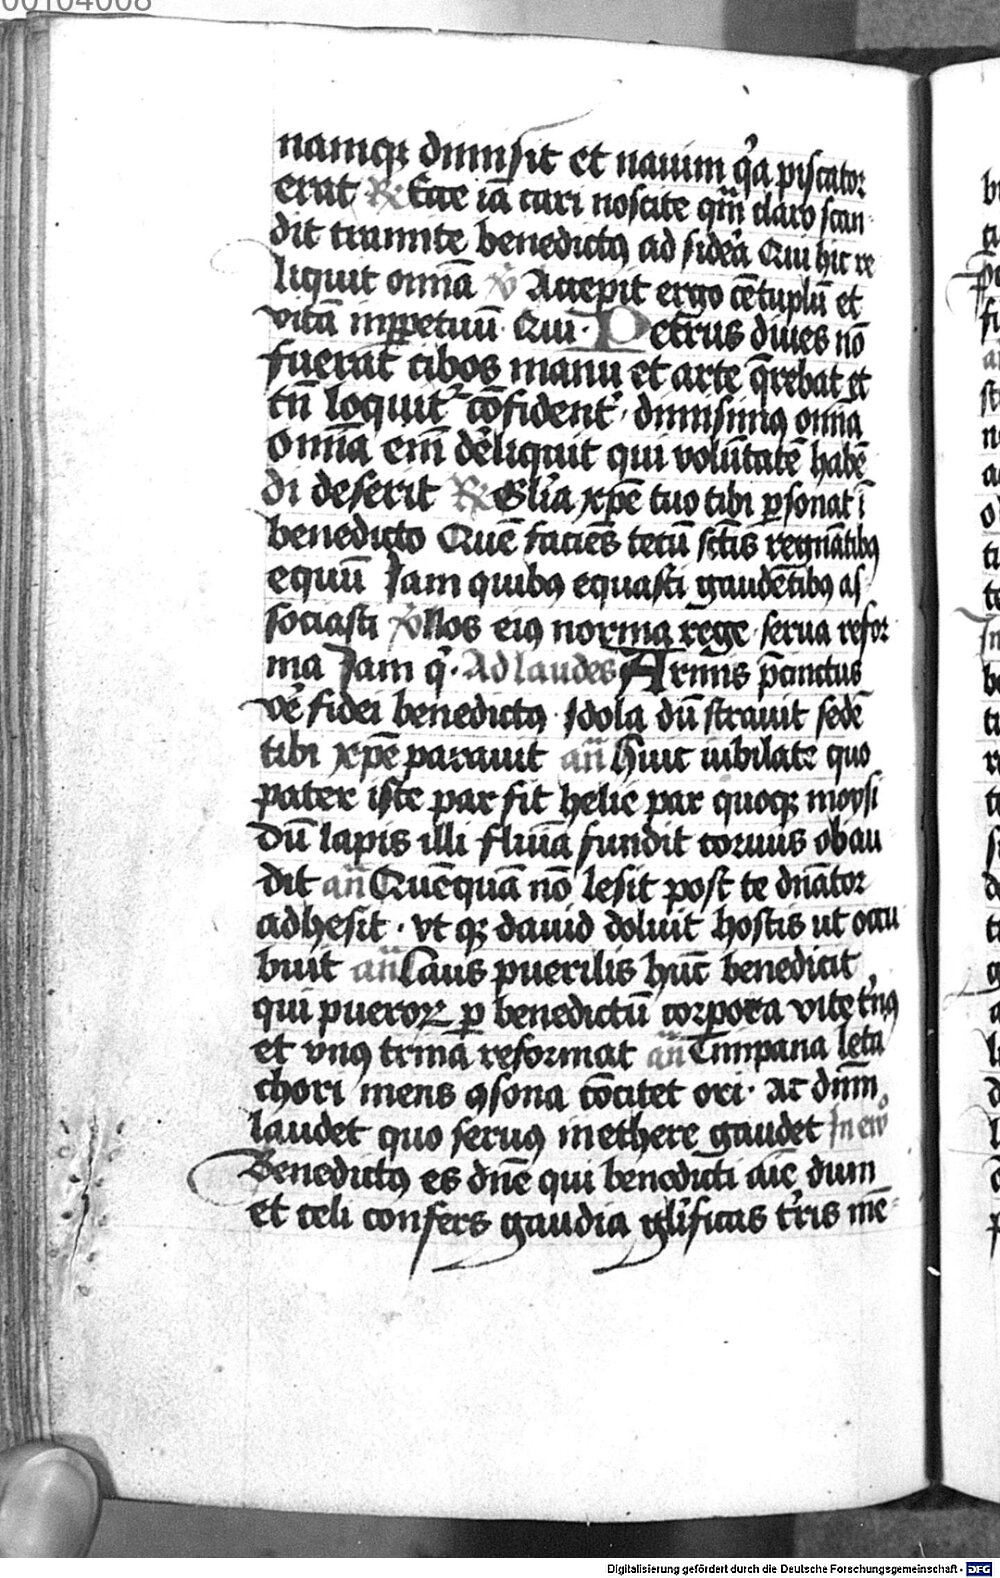 00104008
namqꝫ dimisit et nauim qͣa piscator
erat ℟ Ecce iā cari noscite qm̄ claro scan
dit tramite benedictꝰ ad sidera Qui hic re
liquit omīa ℣ Accepit ergo cētuplū et
vitā inꝑpetuū Qui · Petrus diues nō
fuerat cibos manu et arte q̄rebat et
tn̄ loquitᷣ cōfidentᷣ · dimisimꝰ omīa
Omīa em̄ dereliquit qui volūtatē habē
di deserit ℟ Glīa xp̄e tuo tibi ꝑsonat ī
benedicto Quē facies tecū sctīs regnātibꝰ
equū Jam quibꝰ equasti gaudētibꝰ as
sociasti ℣ Nos eiꝰ norma rege · serua refor
ma Jam q̇ · Ad laudes Armis p̄cinctus
vere fidei benedictꝰ · Jdola dū strauit sedē
tibi xp̄e parauit an̄ Huic iubilate quo
pater iste par fit helie par quoqꝫ moysi
Dū lapis illi fluuīa fundit coruus obau
dit an̄ Quēquā nō lesit post te dn̄ator
adhesit · vt qꝫ dauid doluit hostis ut occu
buit an̄ Laus puerilis hūc benedicit
qui pueroꝝ ꝑ benedictū corpora vite tᷣnꝰ
et vnꝰ trina reformat an̄ Timpana leta
chori mens ꝯsona cōcitet ori · ac dnm̄
laudet quo seruꝰ in ethere gaudet Jn eu̅
Benedictꝰ es dn̄e qui benedicti aīe dum
et celi confers gaudia glīficas tᷣris mē
Digitalisierung gefördert durch die Deutsche Forschungsgemeinschaft - DFG